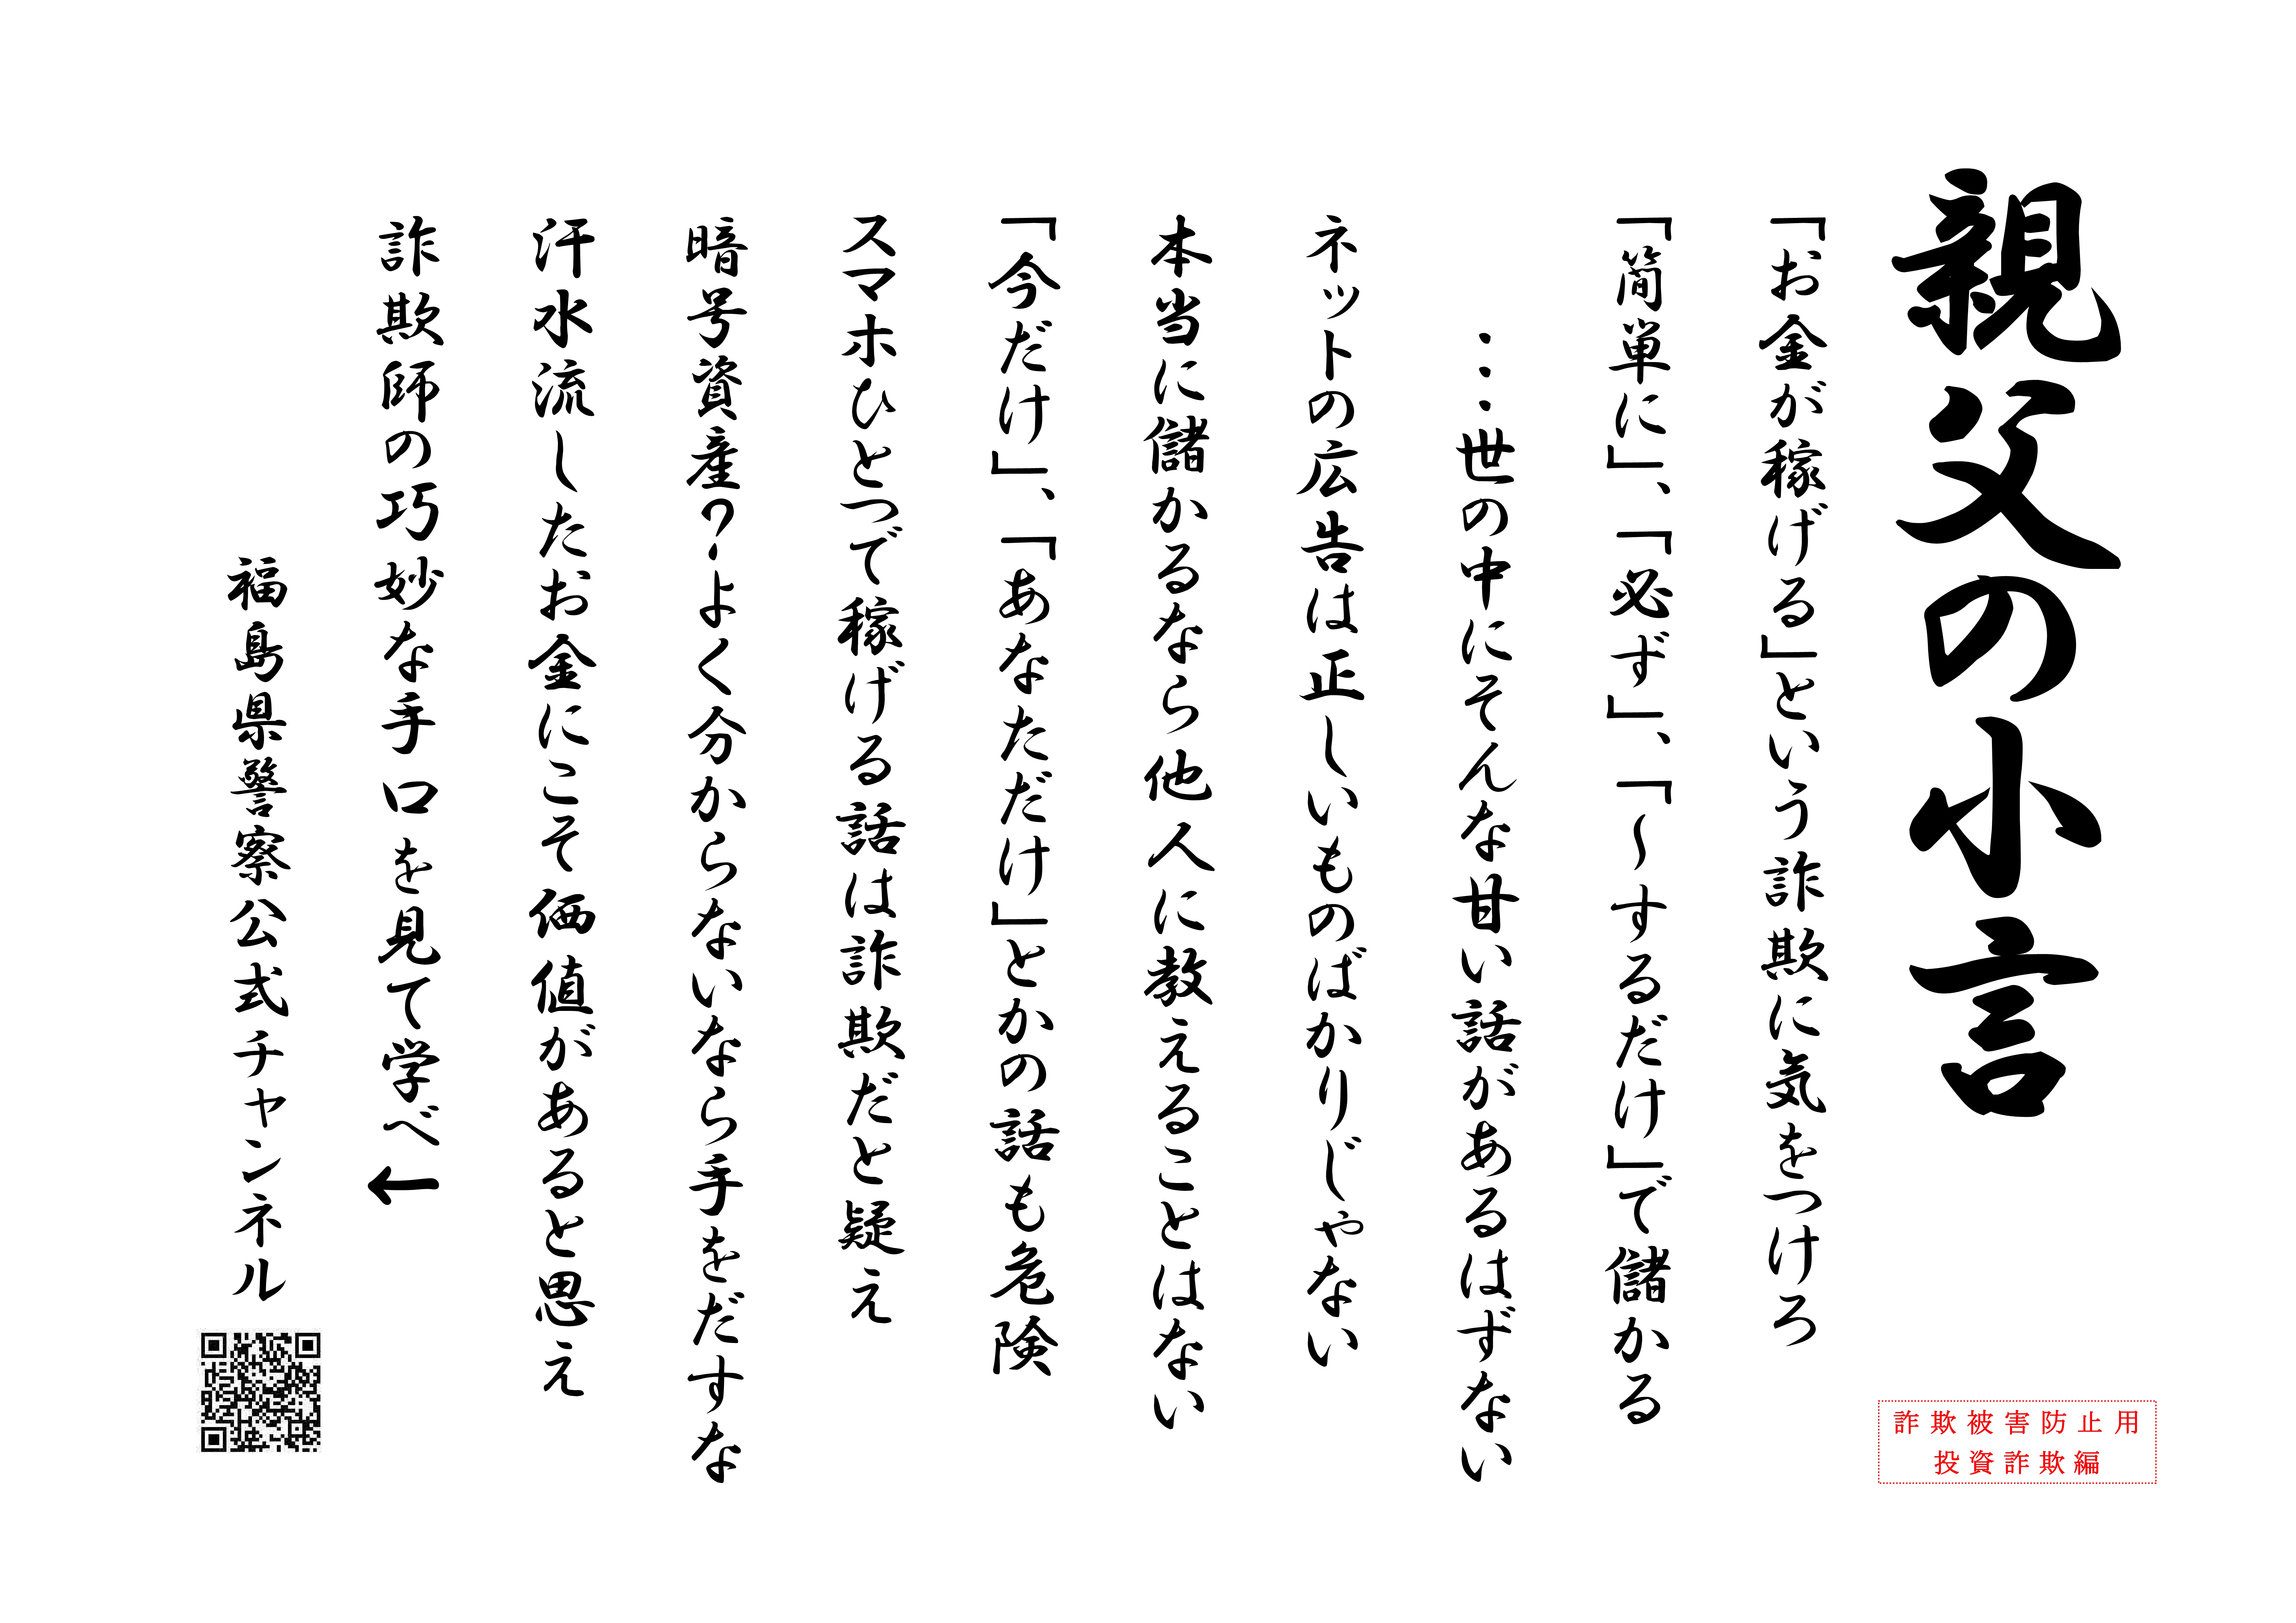 親父の小言
「お金が稼げる」という詐欺に気をつけろ
「簡単に」、「必ず」、「～するだけ」で儲かる
…世の中にそんな甘い話があるはずない
ネットの広告は正しいものばかりじゃない
本当に儲かるなら他人に教えることはない
「今だけ」、「あなただけ」とかの話も危険
スマホひとつで稼げる話は詐欺だと疑え
暗号資産？よく分からないなら手をだすな
汗水流したお金にこそ価値があると思え
詐欺師の巧妙な手口を見て学べ←
福島県警察公式チャンネル
詐欺被害防止用
投資詐欺編